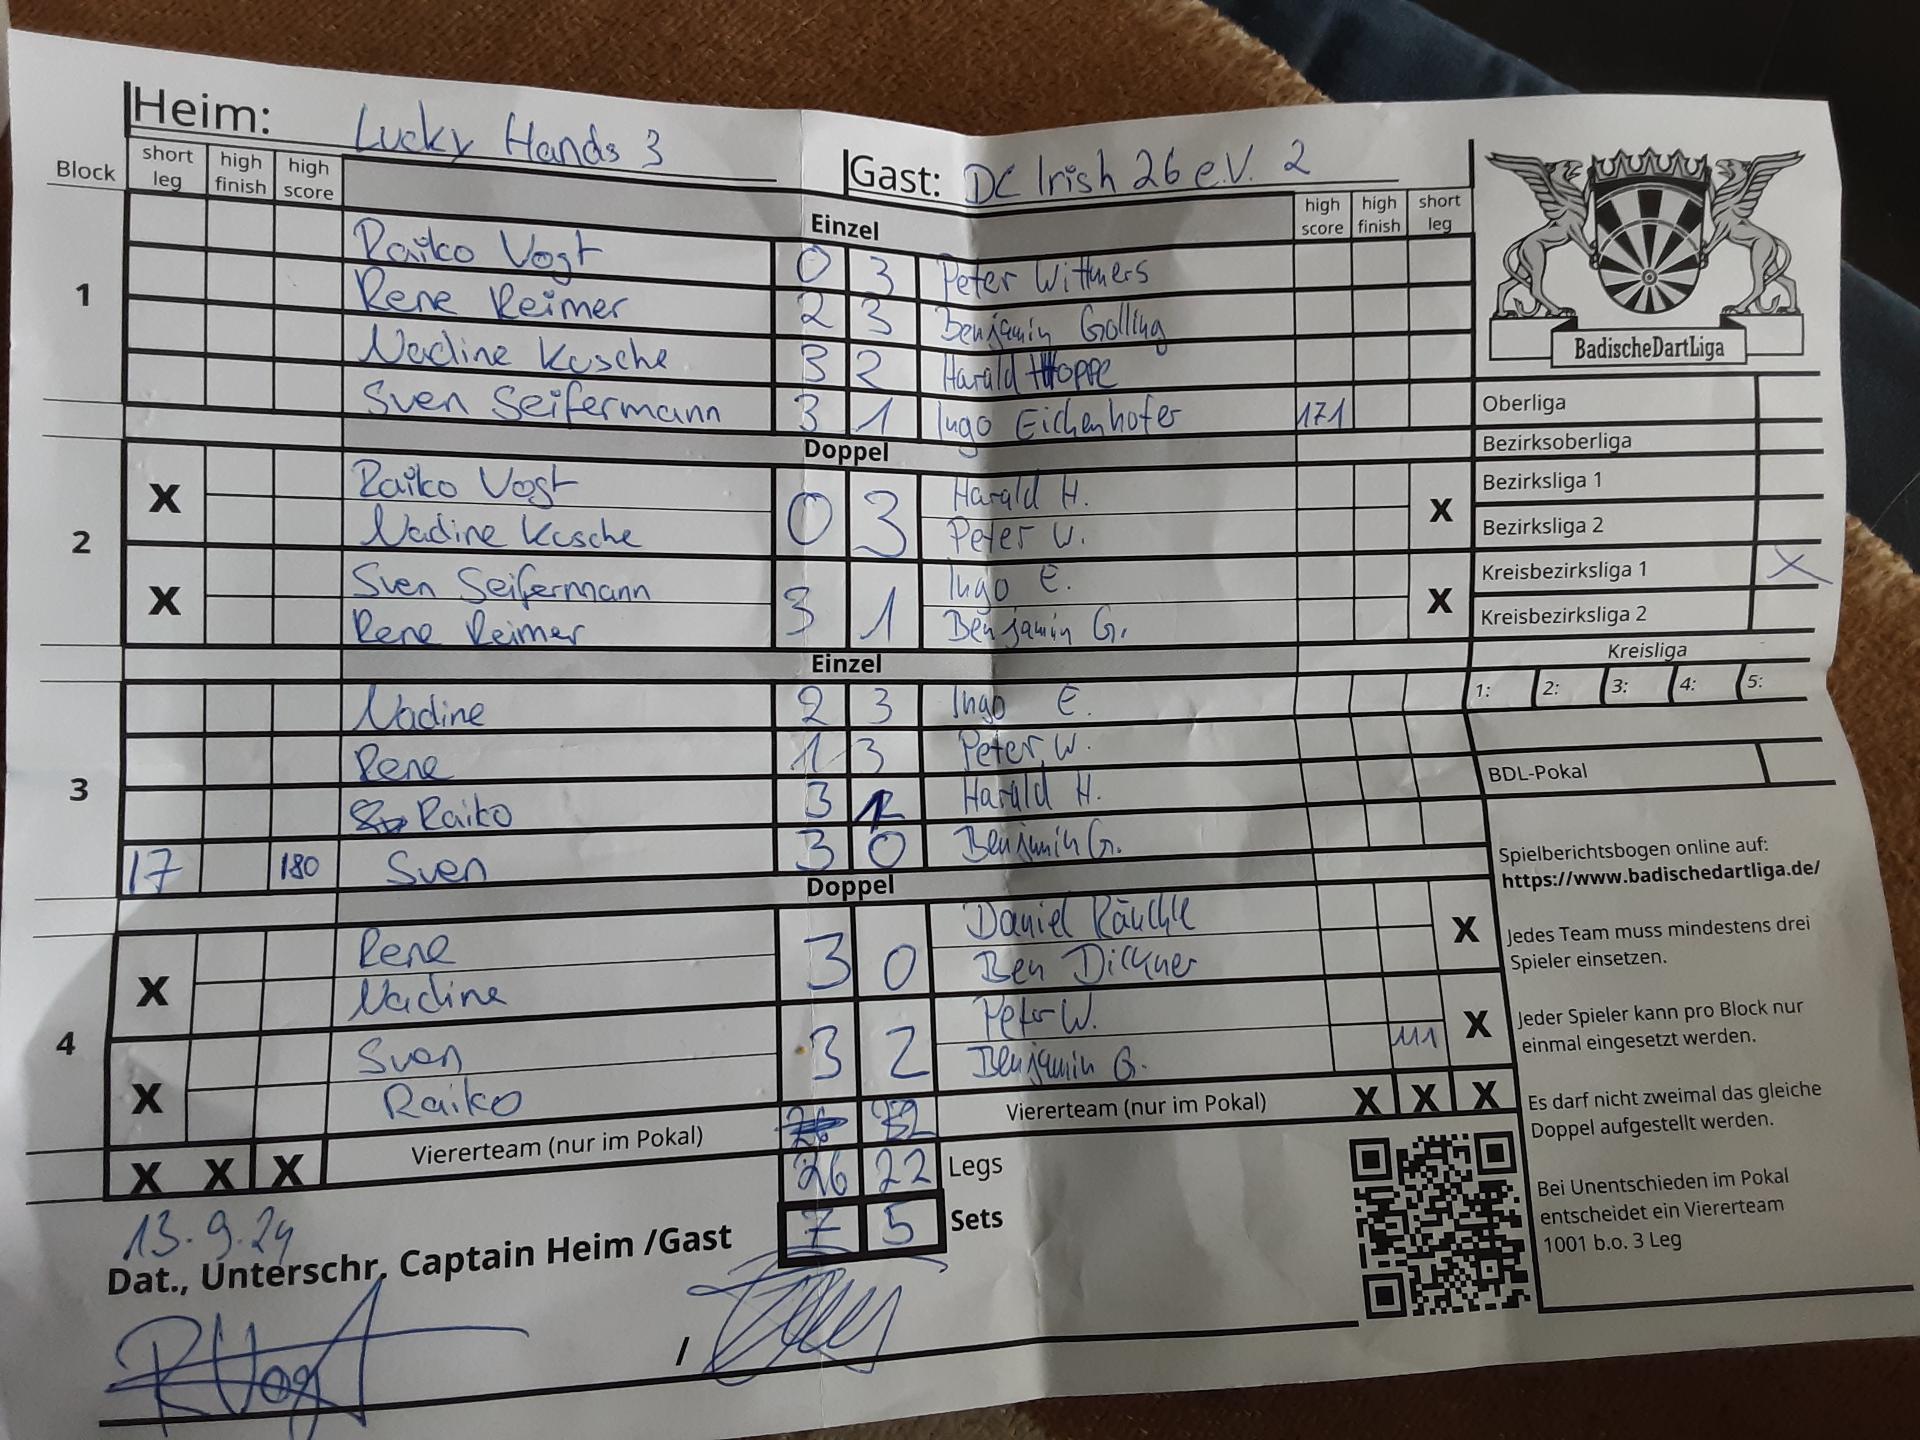 Heim: Lucky Hands 3
Gast: DC Irish 26 e.V. 2
Block short leg high finish high score
high score high finish short leg
Einzel
1
Raiko Vogt 0 3 Peter Wittmers
Rene Reimer 2 3 Benjamin Golling
Nadine Kusche 3 2 Harald Hoppe
Sven Seifermann 3 1 Ingo Eichenhofer 171
Doppel
2
X Raiko Vogt 0 3 Harald H. X
Nadine Kusche Peter W.
X Sven Seifermann 3 1 Ingo E. X
Rene Reimer Benjamin G.
Einzel
3
Nadine 2 3 Ingo E.
Rene 1 3 Peter W.
Raiko 3 Harald H.
17 180 Sven 3 0 Benjamin G.
Doppel
4
X Rene 3 0 Daniel X
Nadine Ben
X Sven 3 2 Peter W. X
Raiko Benjamin G. 111
X X X Vierterteam (nur im Pokal)
Viererteam (nur im Pokal) X X X
26 22 Legs
7 5 Sets
13.9.24
Dat., Unterschr. Captain Heim /Gast
R Vogt /
BadischeDartLiga
Oberliga
Bezirksoberliga
Bezirksliga 1
Bezirksliga 2
Kreisbezirksliga 1 X
Kreisbezirksliga 2
Kreisliga
1: 2: 3: 4: 5:
BDL-Pokal
Spielberichtsbogen online auf:
https://www.badischedartliga.de/
Jedes Team muss mindestens drei
Spieler einsetzen.
Jeder Spieler kann pro Block nur
einmal eingesetzt werden.
Es darf nicht zweimal das gleiche
Doppel aufgestellt werden.
Bei Unentschieden im Pokal
entscheidet ein Viererteam
1001 b.o. 3 Leg